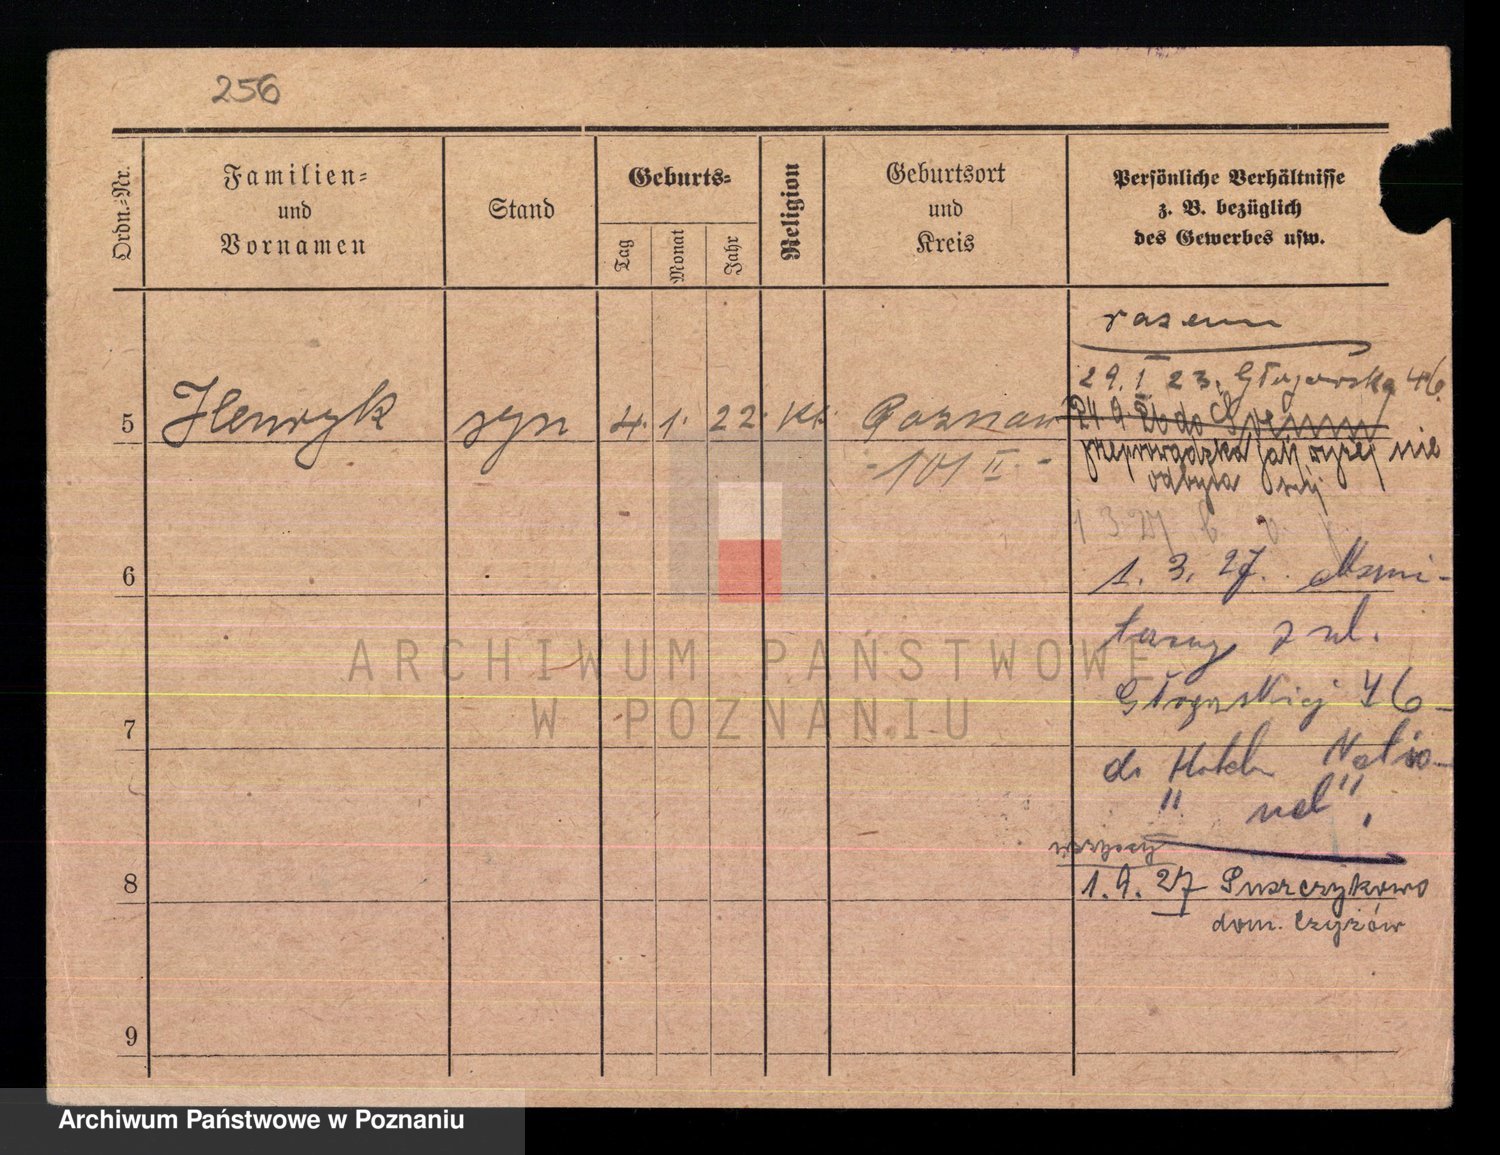 256
Ordn.-Nr.
Familien-
und
Vornamen
Stand
Geburts-
Tag
Monat
Jahr
Religion
Geburtsort
und
Kreis
Persönliche Verhältnisse
z. B. bezüglich
des Gewerbes usw.
razem
29. I 23. Głogowska 46.
5 Henryk syn 4. 1. 22. kt. Poznań
24 9 do
101 II. -
przeprowadzka jak wyżej nie
odbyła się
1 3 27
6
1. 3. 27.
z ul.
Głogowskiej 46
7
do Hotelu Natio-
"nal".
wszyscy
8
1. 9. 27 Puszczykowo
dom. Czyżów
9
ARCHIWUM PAŃSTWOWE
W POZNANIU
Archiwum Państwowe w Poznaniu